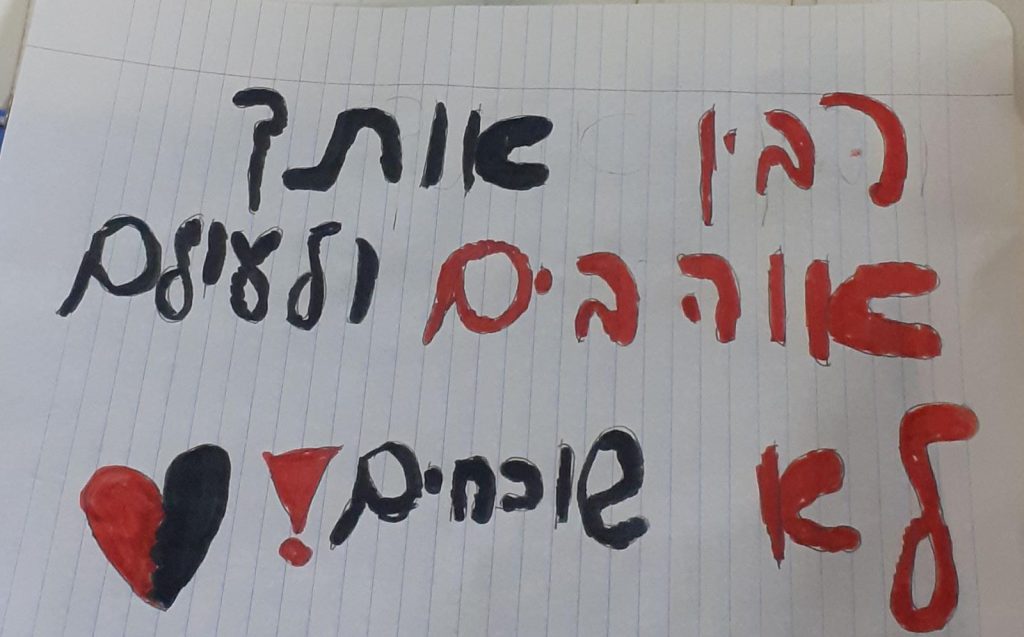 רבין אותך
אוהבים ולעולם
לא שוכחים!